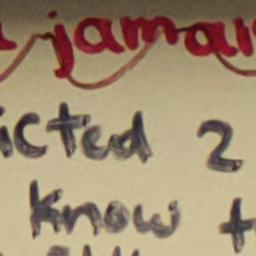 jamai
icted 2
know t